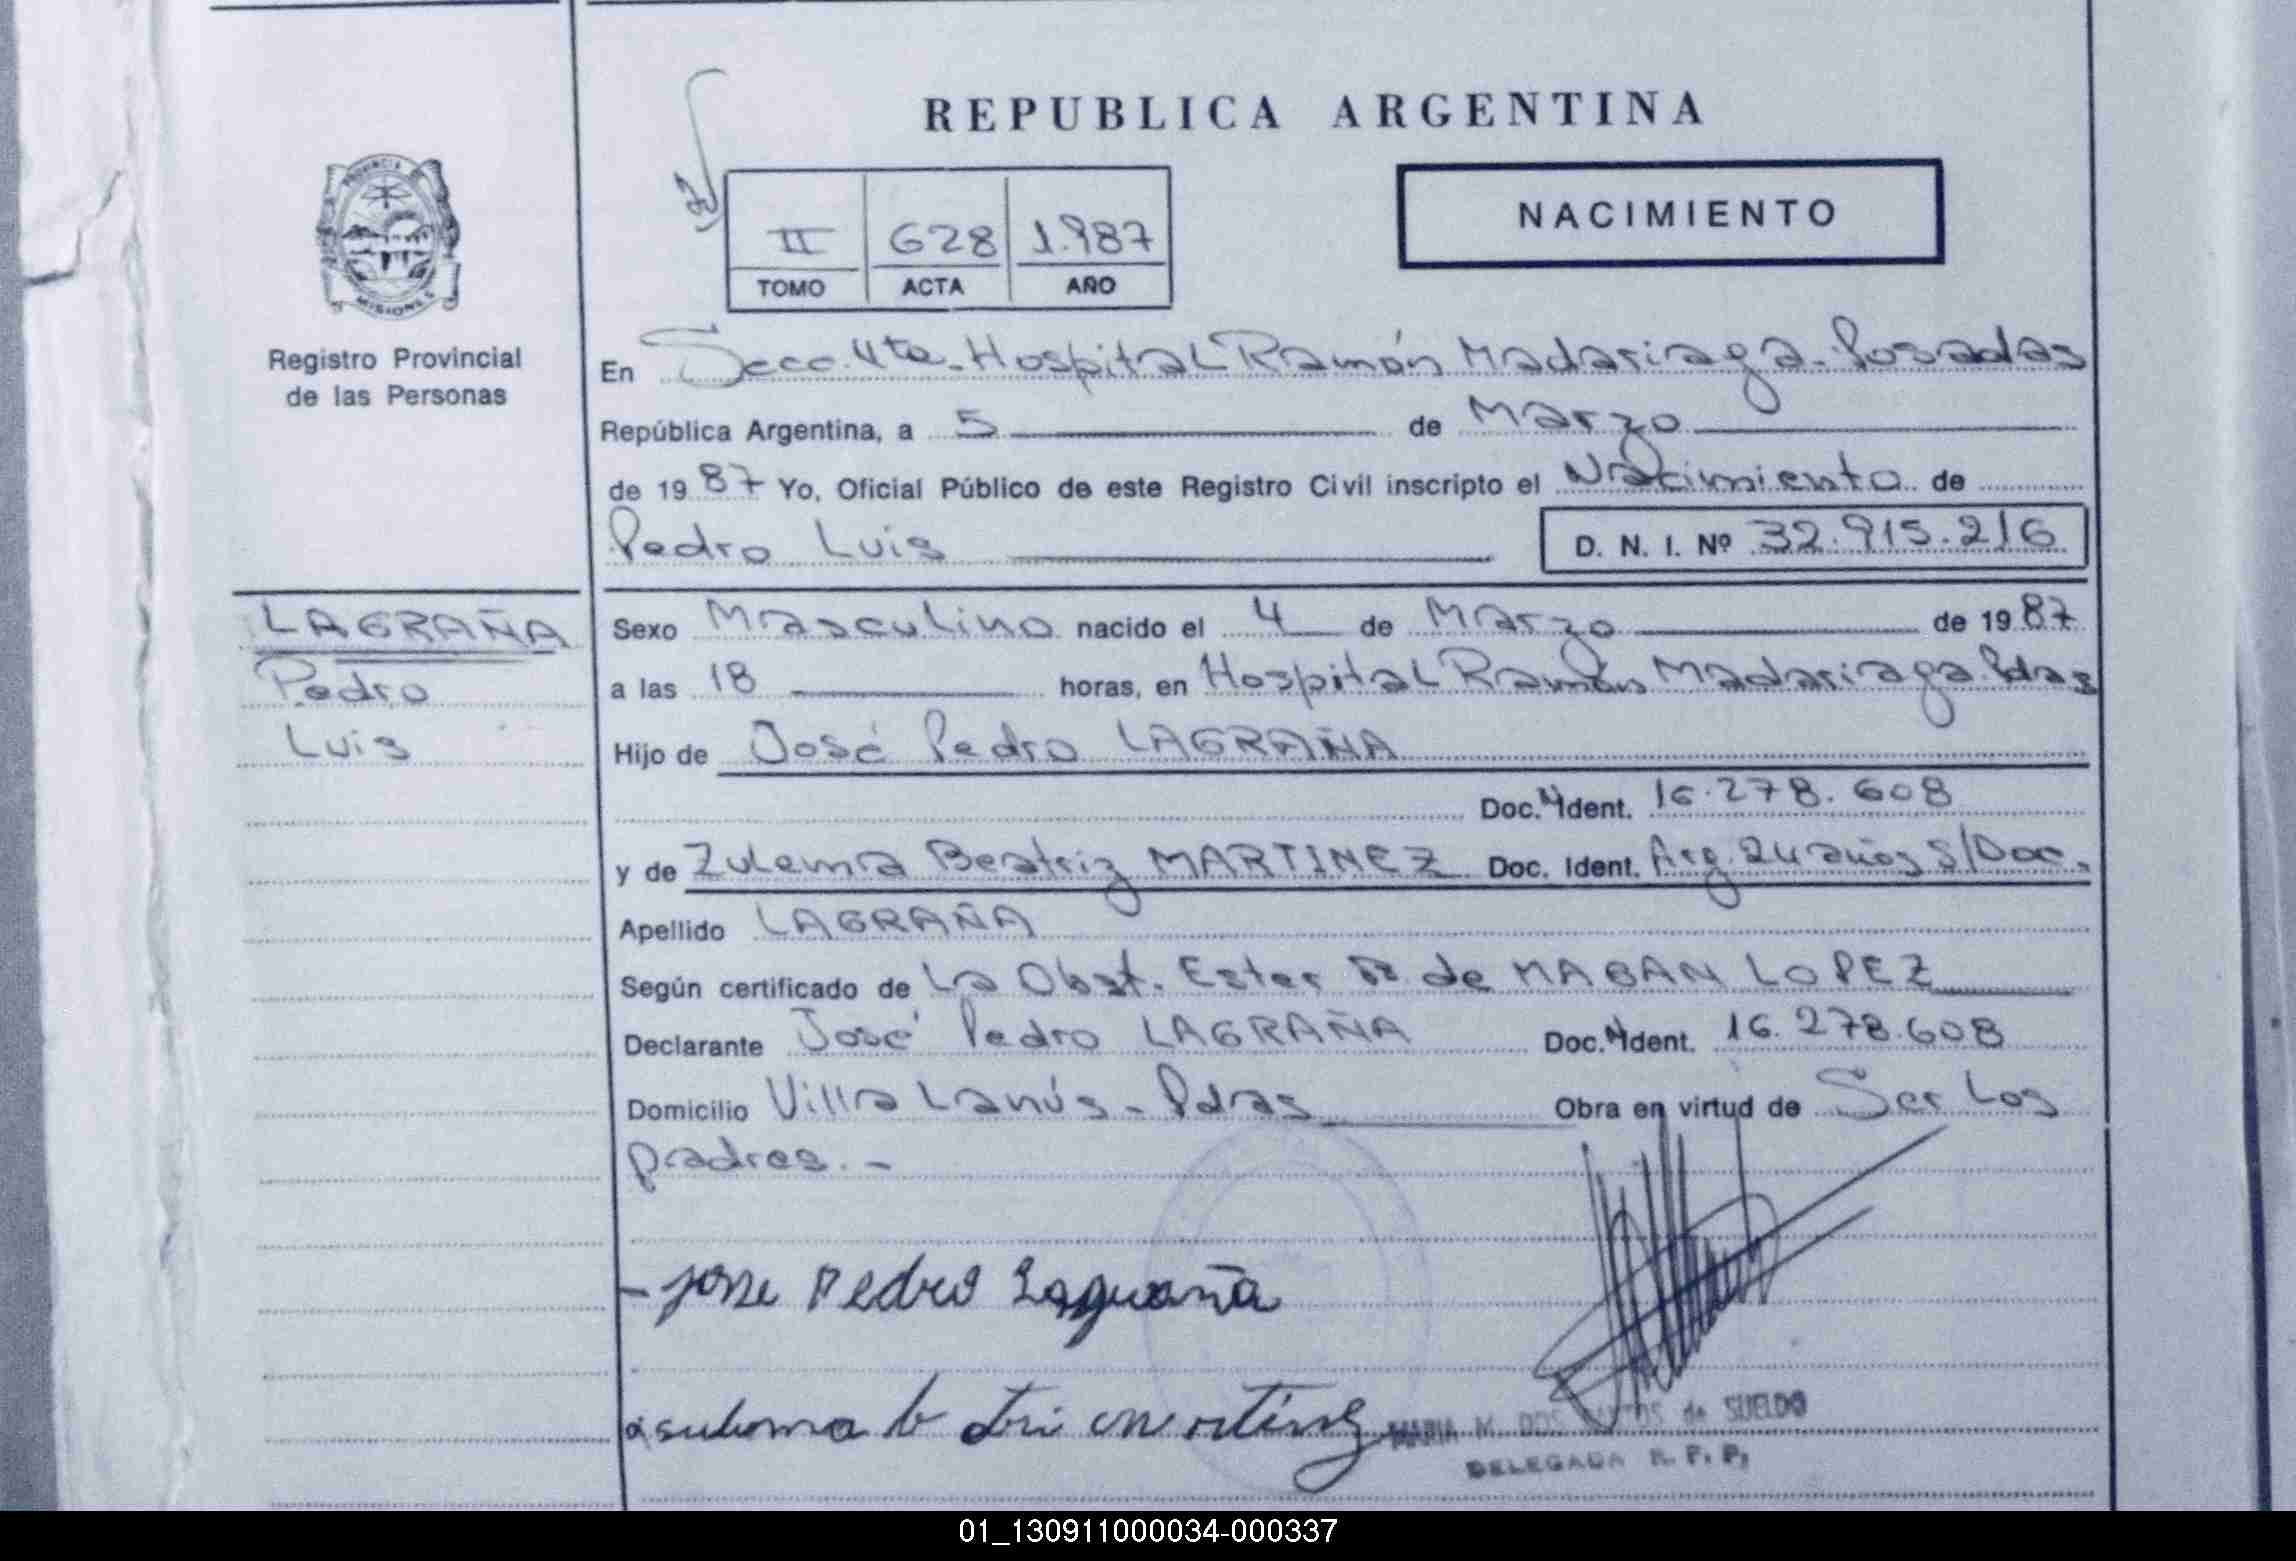 REPUBLICA ARGENTINA
NACIMIENTO
II 628 1.987
TOMO ACTA AÑO
PROVINCIA DE
MISIONES
Registro Provincial
de las Personas
En Secc. 4ta. Hospital Ramón Madariaga - Posadas
República Argentina, a 5 de Marzo
de 1987 Yo, Oficial Público de este Registro Civil inscripto el Nacimiento de
Pedro Luis D. N. I. Nº 32.915.216
LAGRAÑA
Pedro
Luis
Sexo Masculino nacido el 4 de Marzo de 1987
a las 18 horas, en Hospital Ramón Madariaga. Pdas
Hijo de José Pedro LAGRAÑA
Doc. Ident. 16.278.608
y de Zulema Beatriz MARTINEZ Doc. Ident. Arg. 24 años S/Doc.
Apellido LAGRAÑA
Según certificado de La Obst. Ester de MABAN LOPEZ
Declarante José Pedro LAGRAÑA Doc. Ident. 16.278.608
Domicilio Villa Lanús - Pdas Obra en virtud de Ser los
padres. -
- Jose Pedro Lagraña
MARIA M. DOS SANTOS de SUELDO
DELEGADA R. P. P.
01_130911000034-000337